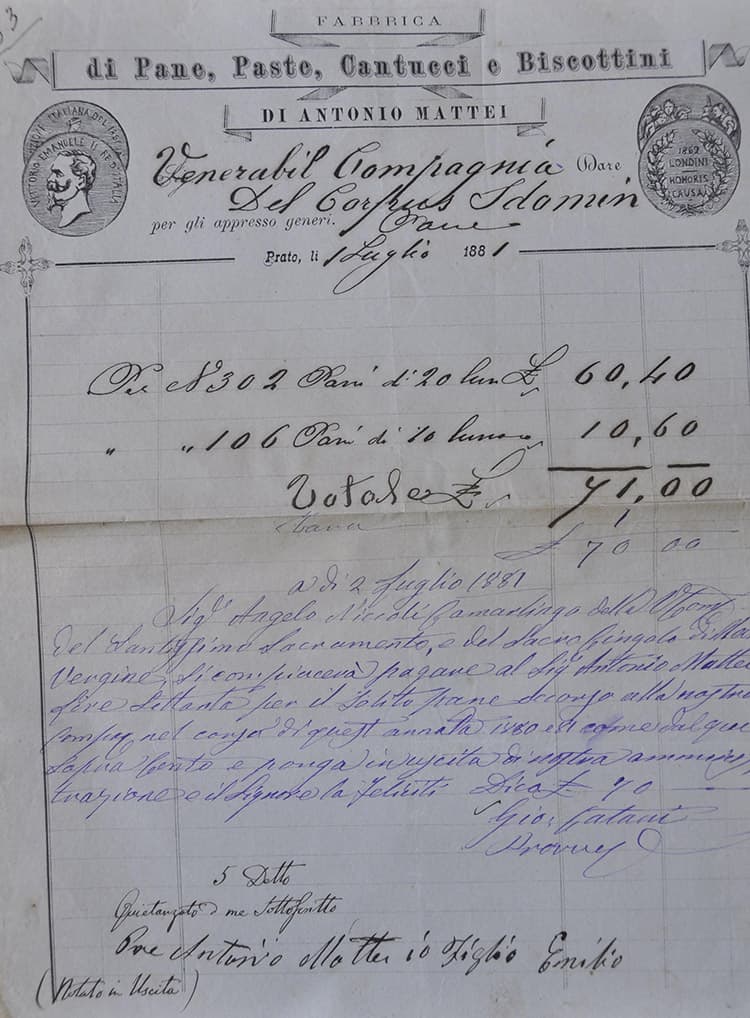 33
FABBRICA
di Pane, Paste, Cantucci e Biscottini
DI ANTONIO MATTEI
VITTORIO EMANUELE II RE D'ITALIA
1862
LONDINI
HONORIS
CAUSA
Venerabil Compagnia Dare
Del Corpus Idomin
per gli appresso generi. Pane
Prato, li 1 Luglio 1881
Per N° 302 Pani di 20 £ 60,40
" " 106 Pani di 10 10,60
Totale £ 71,00
Tara 1
£ 70 00
a di 2 Luglio 1881
Sigr Angelo Niccoli Camarlingo della V Com
del Santissimo Sacramento, e del Sacro Cingolo di Mar
Vergine, si compiacerà pagare al Sigr Antonio Mattei
Lire Settanta per il solito pane alla nostra
Compag nel corso di quest annata 1880 e 81 come dal qui
sopra Conto e ponga in uscita di nostra ammini
trazione e il Signore la feliciti Dico £ 70
Gio. Catani
Provved
5 Detto
Quietanzato d me Sottoscritto
Per Antonio Mattei io Figlio Emilio
(Notato in Uscita)